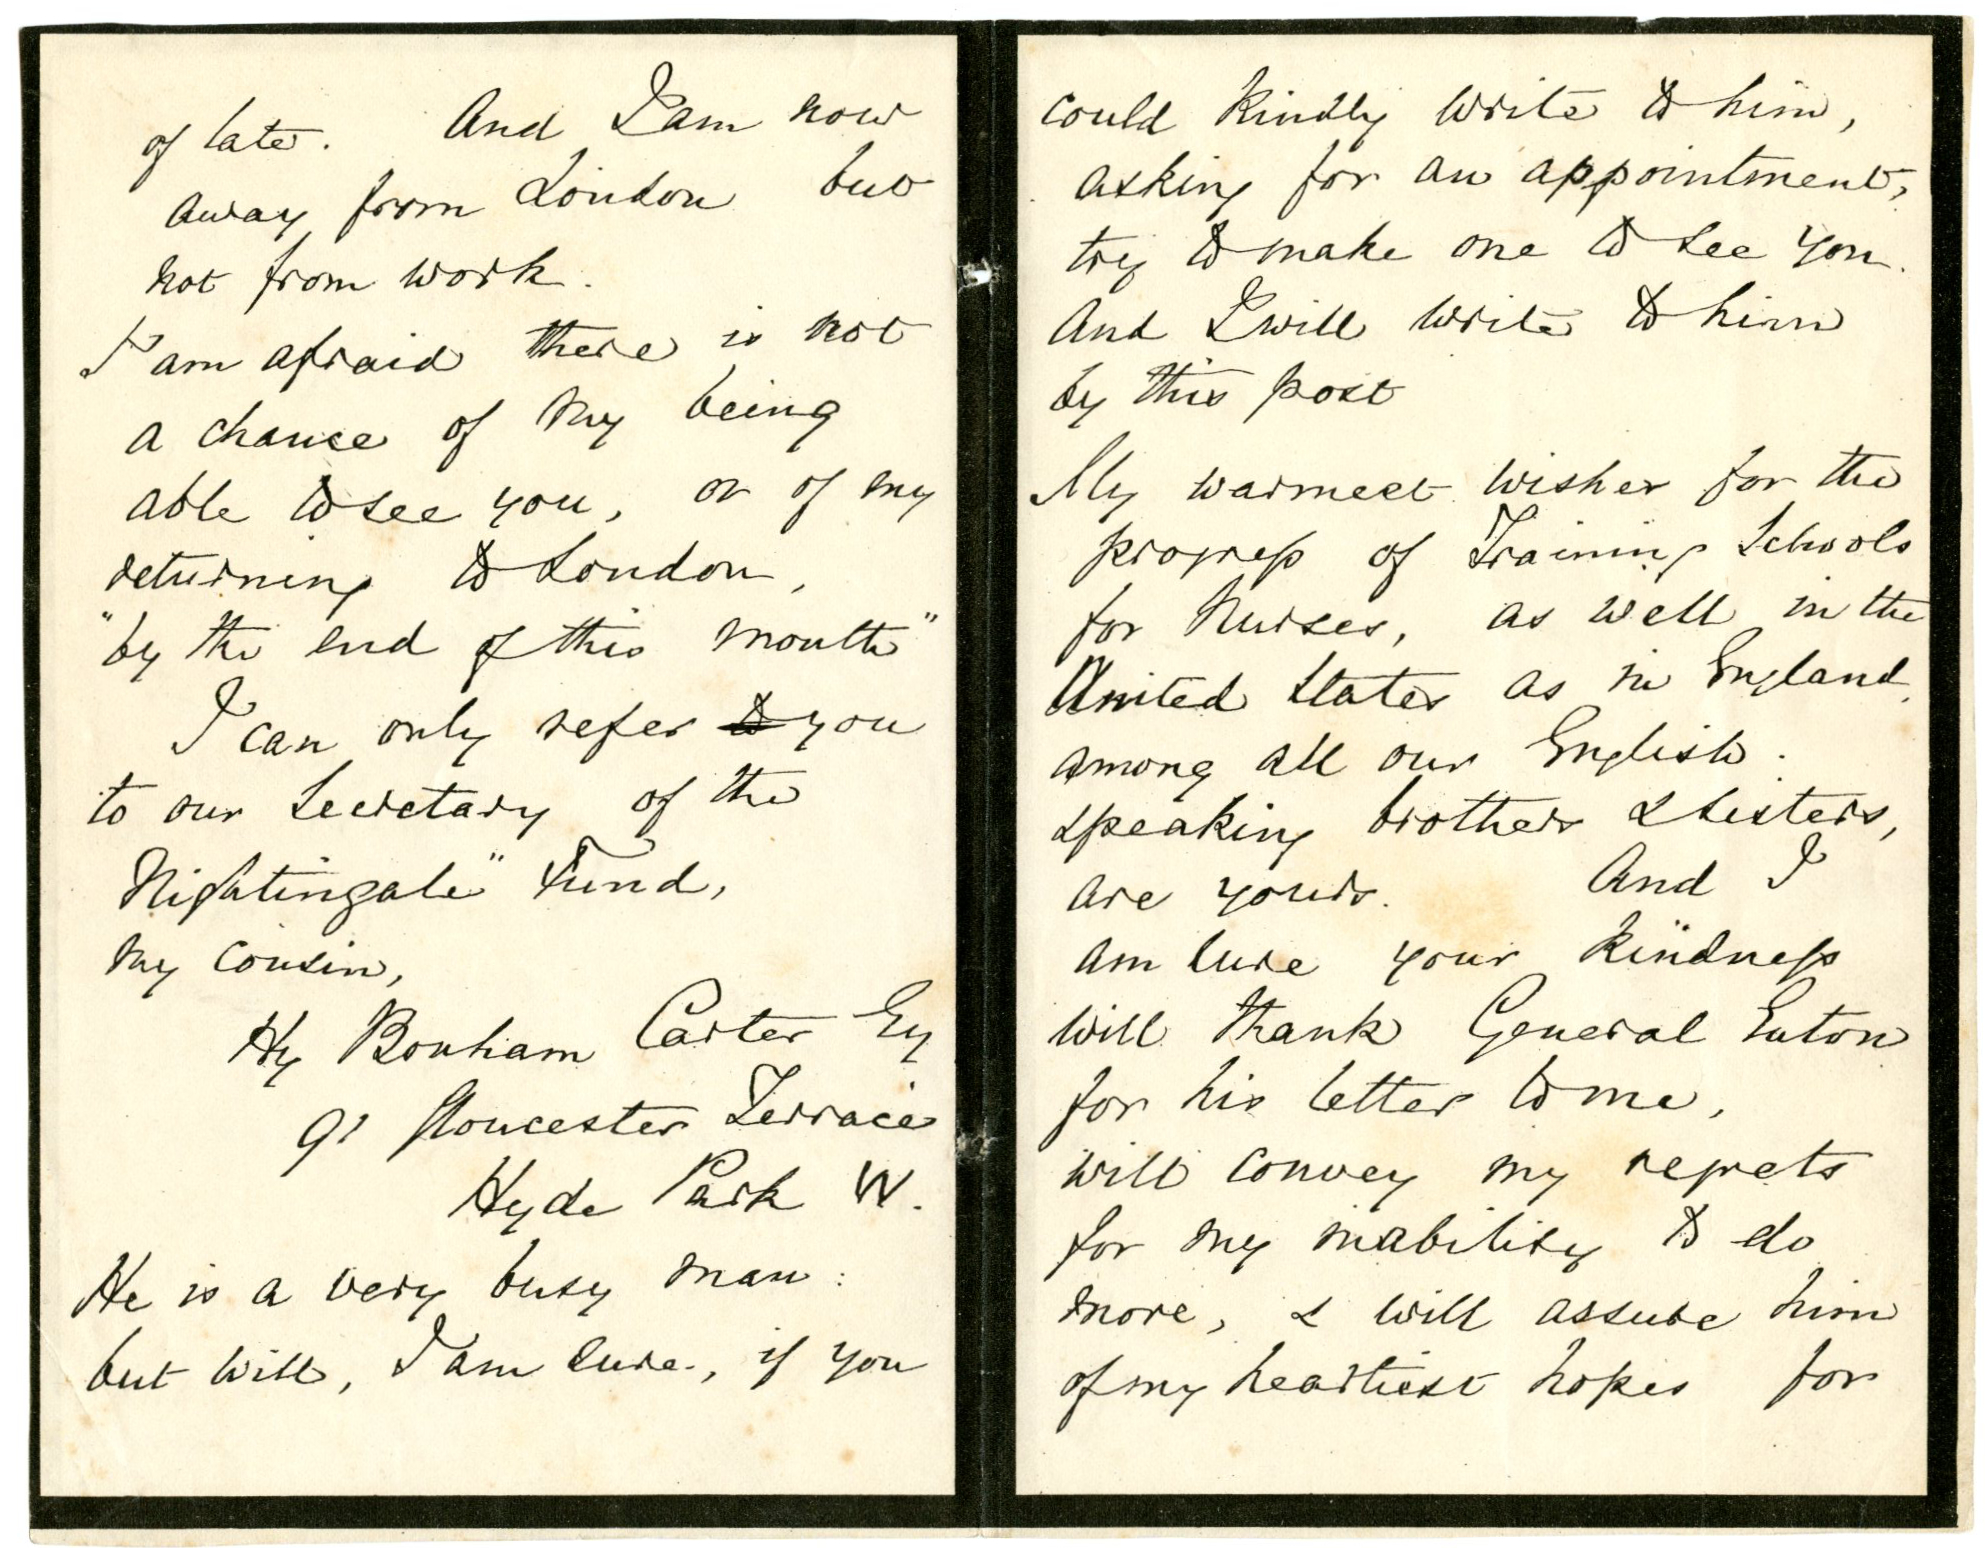 of late. And I am now
away from London but
not from work.
I am afraid there is not
a chance of my being
able to see you, or of my
returning to London,
"by the end of this month"
I can only refer to you
to our Secretary of the
Nightingale" Fund,
my cousin,
Hy Bonham Carter Esq
91 Gloucester Terrace
Hyde Park W.
He is a very busy man:
but will, I am sure, if you
could kindly write to him,
asking for an appointment,
try to make one to see you.
And I will write to him
by this post
My warmest wishes for the
progress of Training Schools
for Nurses, as well in the
United States as in England,
among all our English-
speaking brothers & sisters,
are yours. And I
am sure your kindness
will thank General Eaton
for his letter to me,
will convey my regrets
for my inability to do
more, & will assure him
of my heartiest hopes for